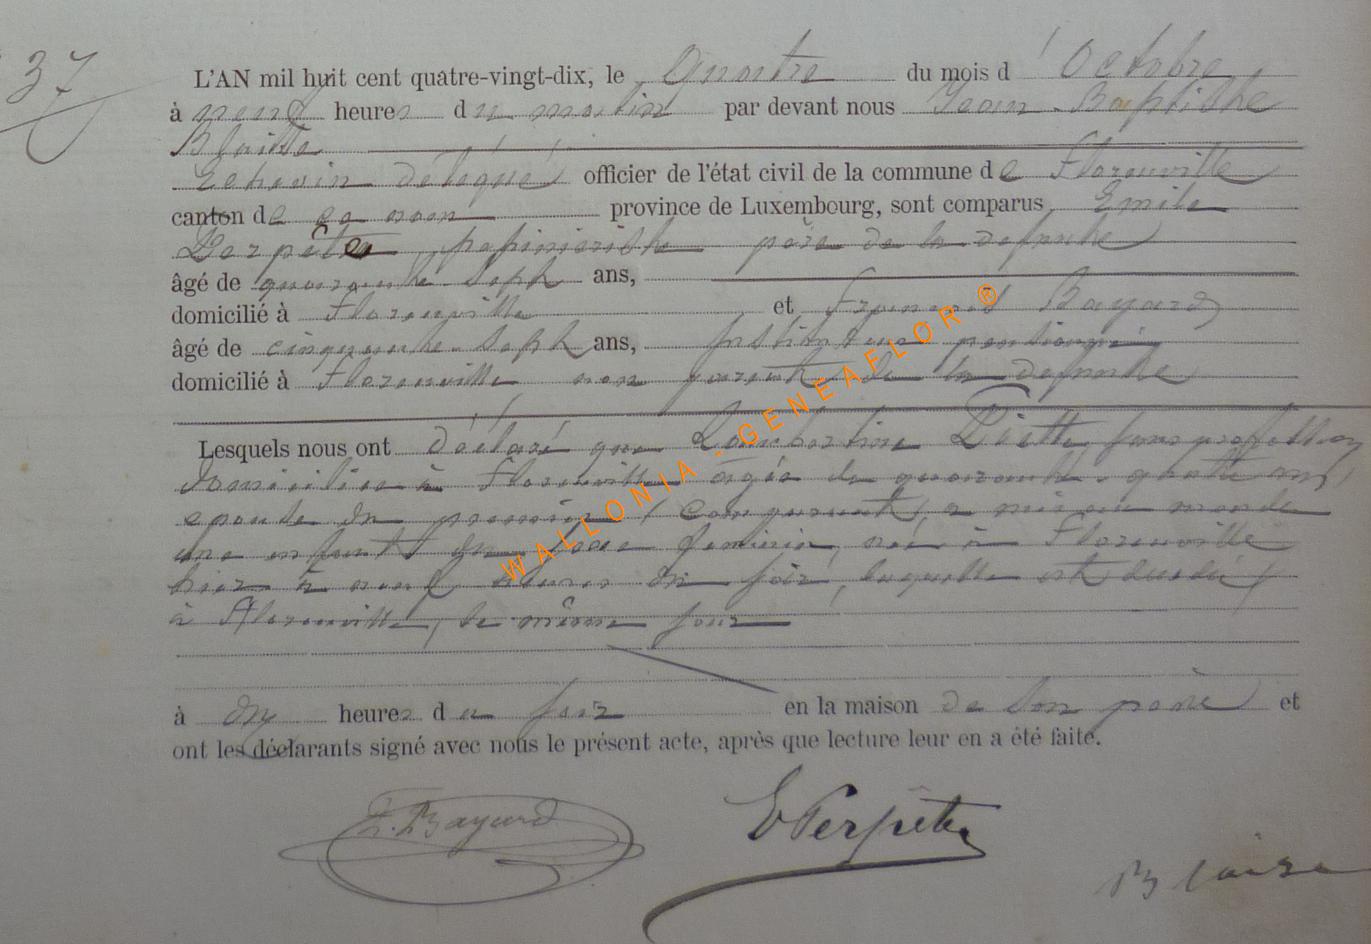 37
L'AN mil huit cent quatre-vingt-dix, le Quatre du mois d'Octobre
à neuf heures du matin par devant nous Jean-Baptiste
Blaise
Echevin délégué officier de l'état civil de la commune de Florenville
canton de ce nom province de Luxembourg, sont comparus Emile
Perpète, pépinieriste père de la defunte
âgé de quarante sept ans,
domicilié à Florenville et François Bayard
âgé de cinquante sept ans, Instituteur pensionné
domicilié à Florenville non parent de la defunte
Lesquels nous ont déclaré que Lambertine Piette sans profession
domiciliée à Florenville âgée de quarante-quatre ans,
epouse du premier comparant, a mis au monde
une enfant du sexe feminin, née à Florenville
hier à neuf heures du soir, laquelle est decedée
à Florenville, le même jour
à dix heures du soir en la maison de son père et
ont les déclarants signé avec nous le présent acte, après que lecture leur en a été faite.
F. Bayard
E Perpète
Blaise
WALLONIA - GENEAFLOR ®